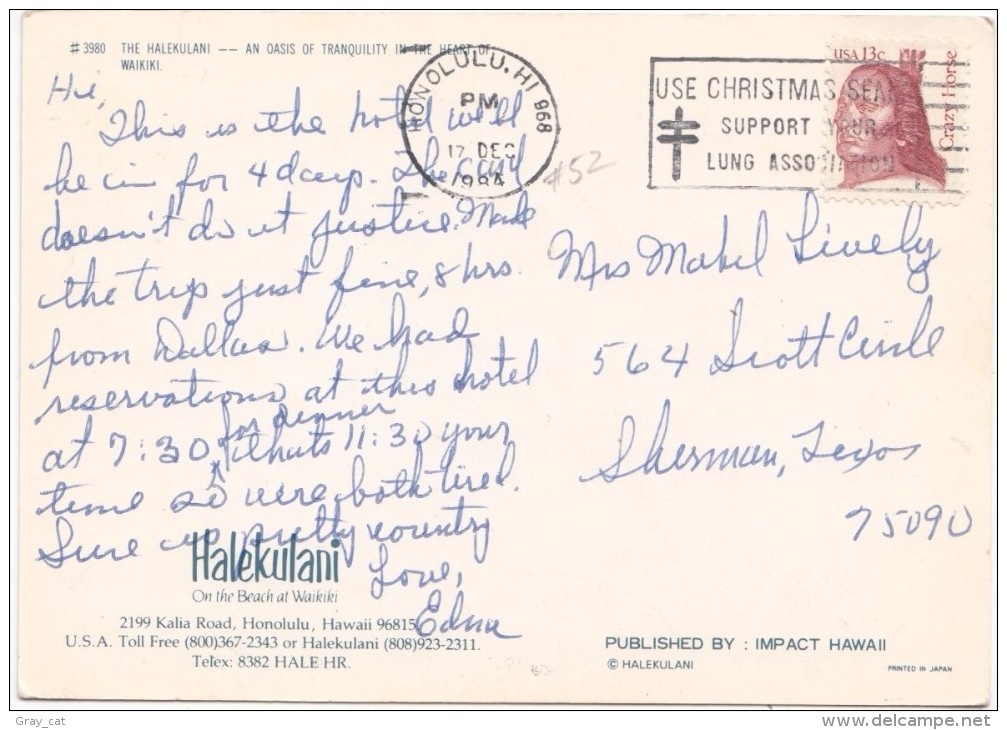 #3980 THE HALEKULANI -- AN OASIS OF TRANQUILITY IN THE HEART OF
WAIKIKI.
HONOLULU, HI 968
PM
17 DEC
1984
USE CHRISTMAS SEALS
SUPPORT YOUR
LUNG ASSOCIATION
USA 13c
Crazy Horse
#52
Hi,
This is the hotel we'll
be in for 4 days. The card
doesn't do it justice. Made
the trip just fine, 8 hrs.
from Dallas. We had
reservations at this hotel
for dinner
at 7:30, thats 11:30 your
time so were both tired.
Sure is pretty country
Love,
Edna
Mrs Mabel Lively
564 Scott Circle
Sherman, Texas
75090
Halekulani
On the Beach at Waikiki
2199 Kalia Road, Honolulu, Hawaii 96815
U.S.A. Toll Free (800)367-2343 or Halekulani (808)923-2311.
Telex: 8382 HALE HR.
PUBLISHED BY : IMPACT HAWAII
© HALEKULANI
PRINTED IN JAPAN
Gray_cat
delcampe.net